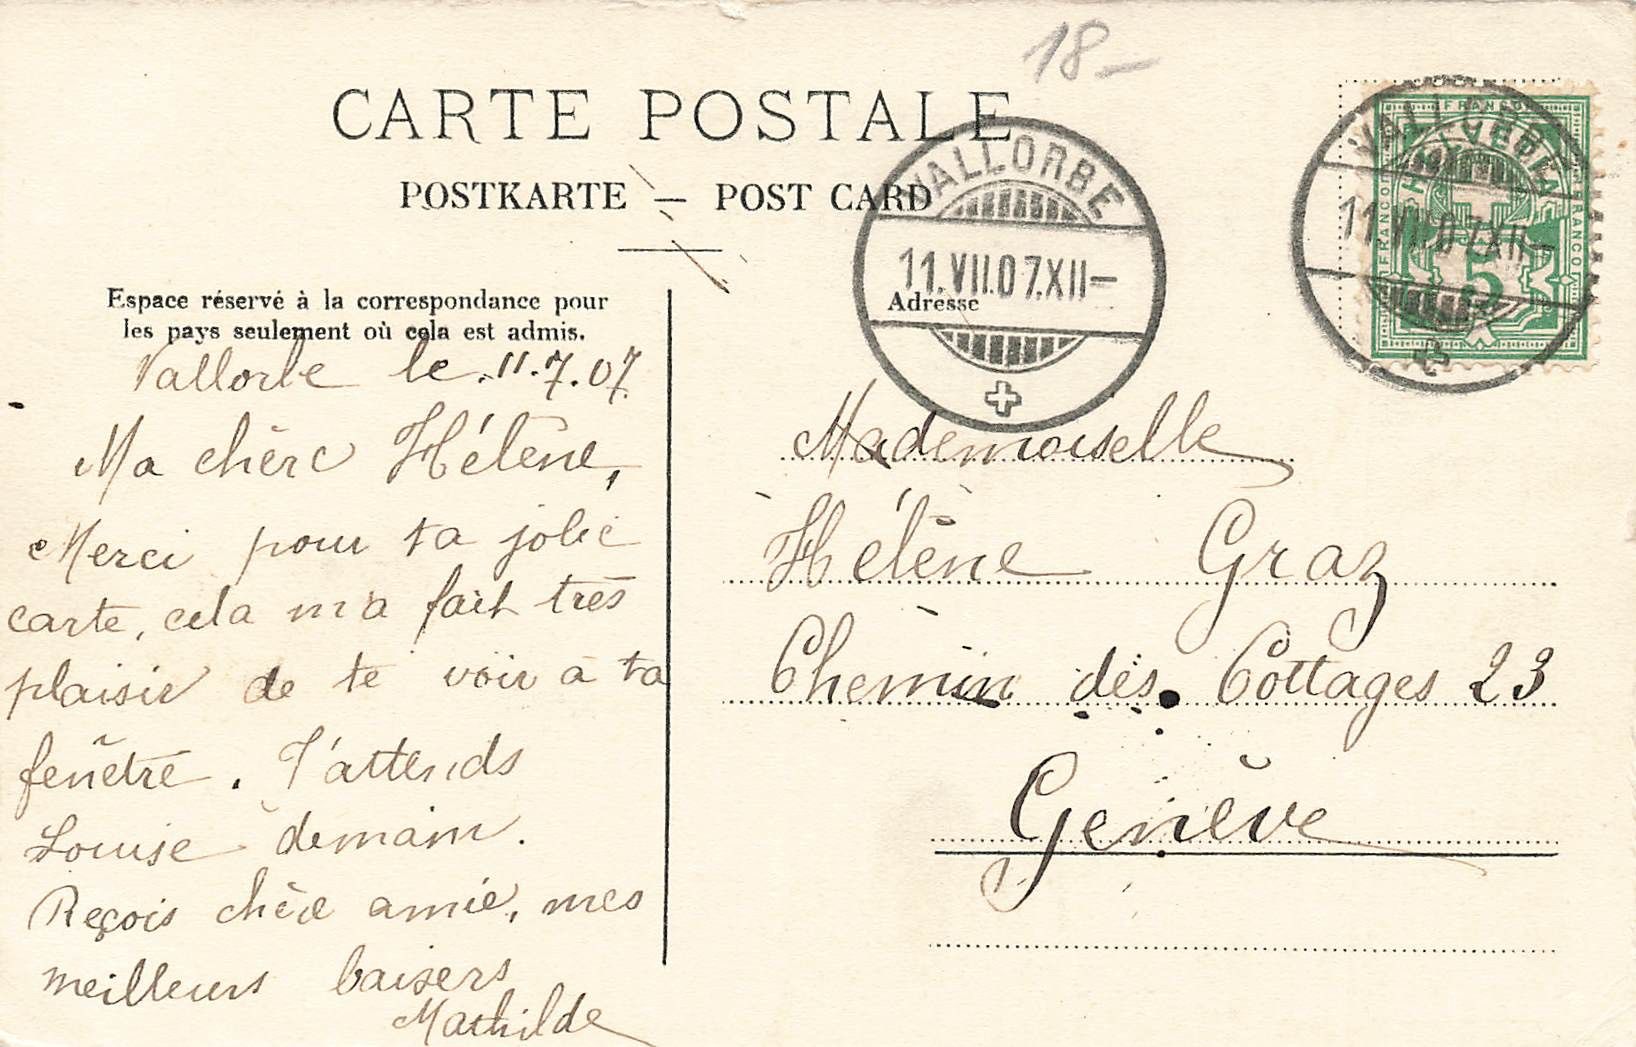 18-
CARTE POSTALE
POSTKARTE — POST CARD
Espace réservé à la correspondance pour
les pays seulement où cela est admis.
Adresse
VALLORBE
11.VII.07.XII-
VALLORBE
11.VII.07.XII-
FRANCO
HELVETIA
FRANCO
FRANCO
5
Vallorbe le 11.7.07.
Ma chère Hélène,
Merci pour ta jolie
carte, cela m'a fait très
plaisir de te voir à ta
fenêtre. J'attends
Louise demain.
Reçois chère amie, mes
meilleurs baisers
Mathilde
Mademoiselle
Hélène Graz
Chemin des Cottages 23
Genève